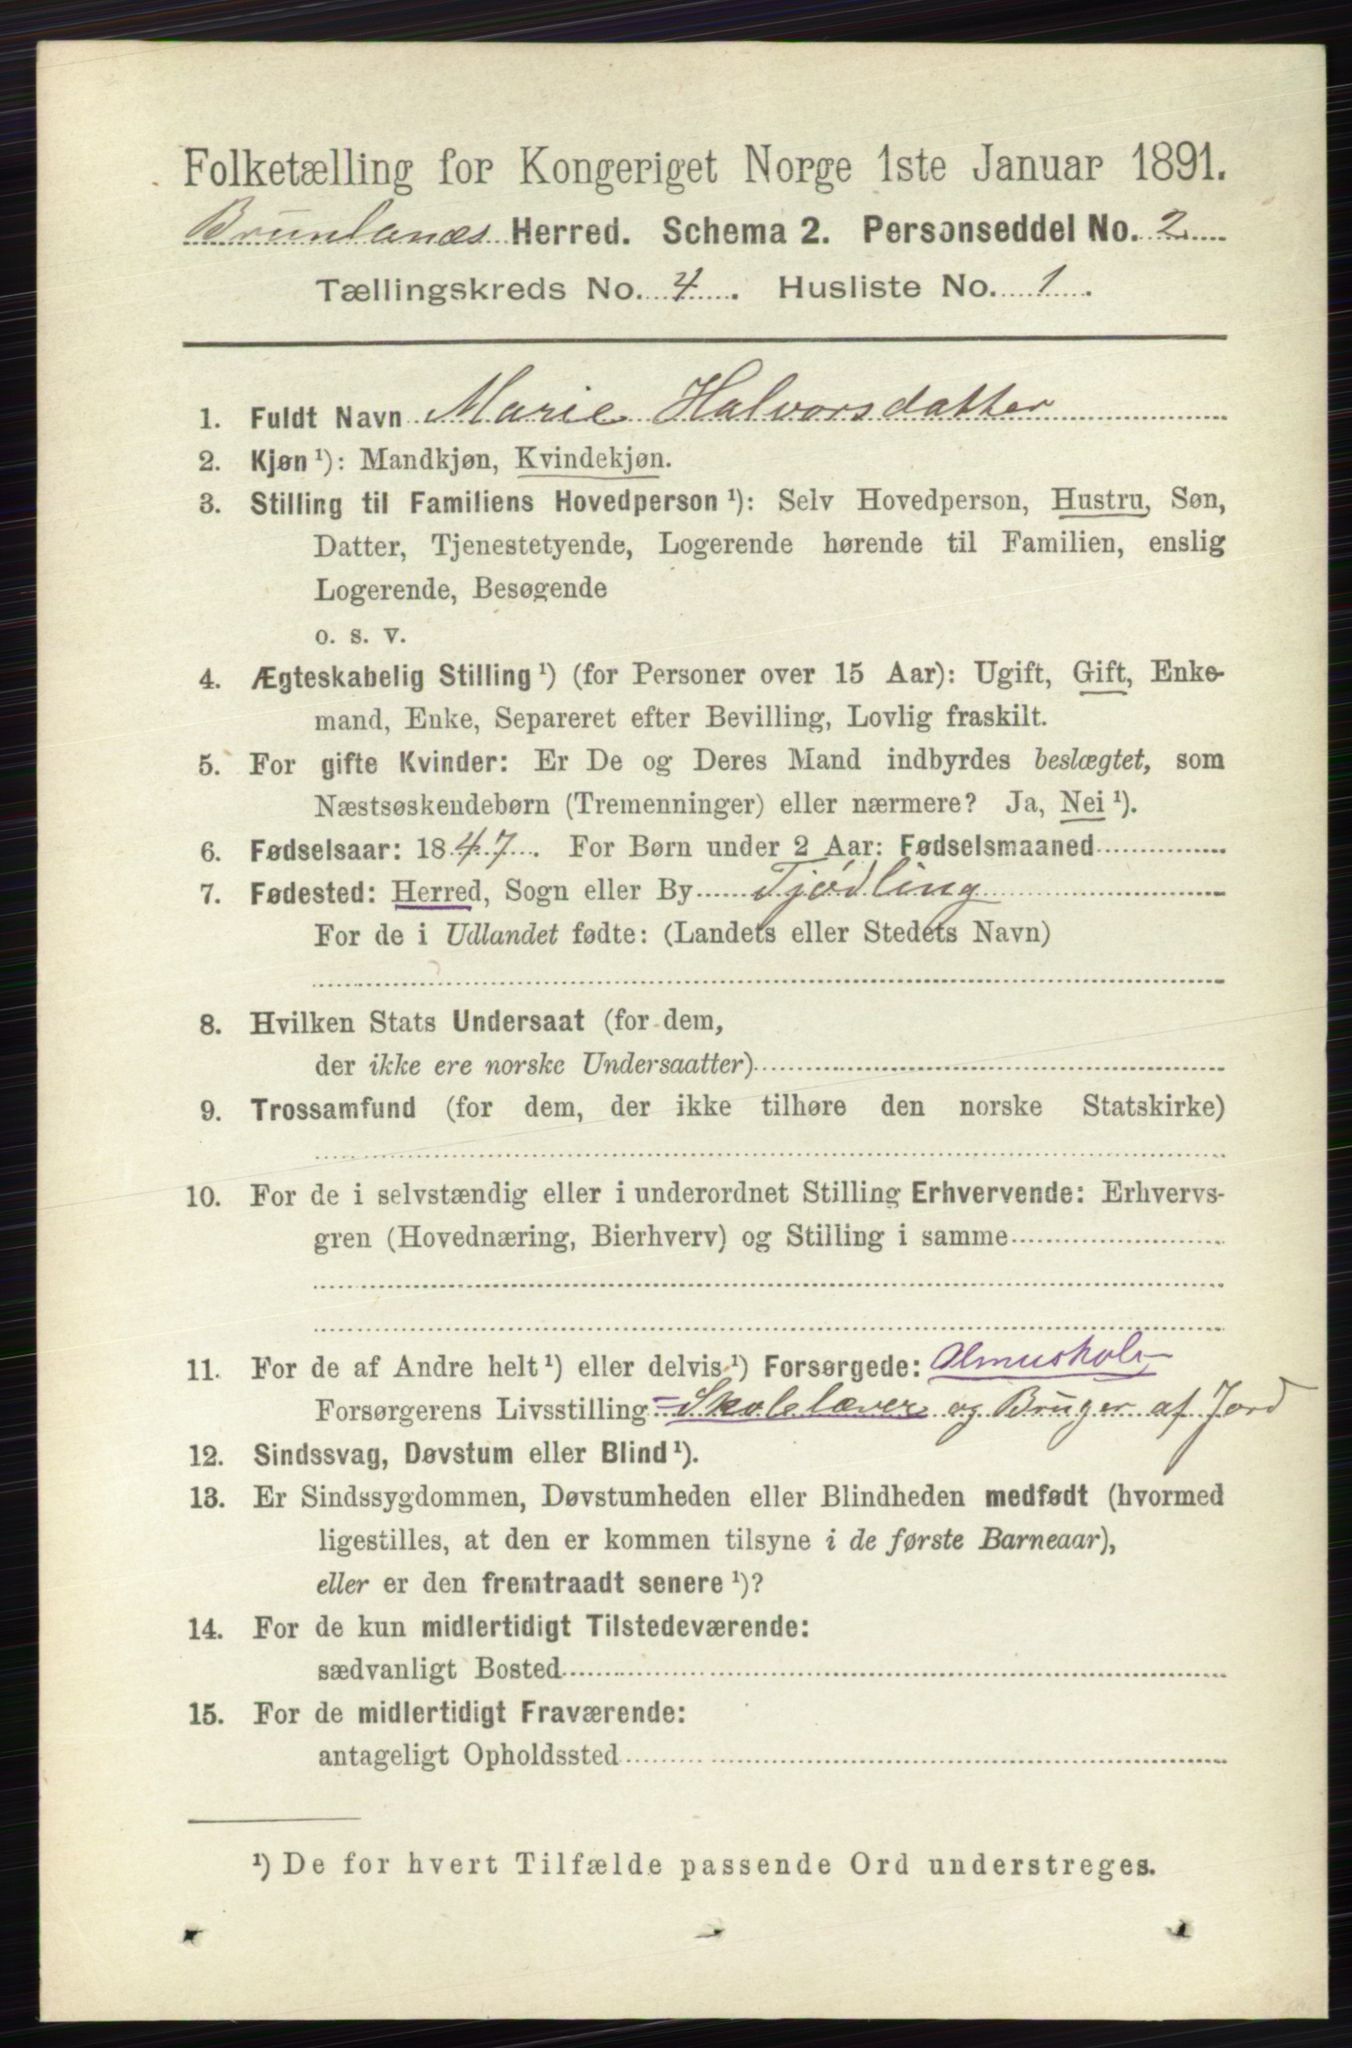 Folketælling for Kongeriget Norge 1ste Januar 1891.
Brunlanæs Herred. Schema 2. Personseddel No. 2
Tællingskreds No. 4. Husliste No. 1.
1. Fuldt Navn Marie Halvorsdatter
2. Kjøn ¹): Mandkjøn, Kvindekjøn.
3. Stilling til Familiens Hovedperson ¹): Selv Hovedperson, Hustru, Søn,
Datter, Tjenestetyende, Logerende hørende til Familien, enslig
Logerende, Besøgende
o. s. v.
4. Ægteskabelig Stilling ¹) (for Personer over 15 Aar): Ugift, Gift, Enke-
mand, Enke, Separeret efter Bevilling, Lovlig fraskilt.
5. For gifte Kvinder: Er De og Deres Mand indbyrdes beslægtet, som
Næstsøskendebørn (Tremenninger) eller nærmere? Ja, Nei ¹).
6. Fødselsaar: 1847. For Børn under 2 Aar: Fødselsmaaned
7. Fødested: Herred, Sogn eller By Tjødling
For de i Udlandet fødte: (Landets eller Stedets Navn)
8. Hvilken Stats Undersaat (for dem,
der ikke ere norske Undersaatter)
9. Trossamfund (for dem, der ikke tilhøre den norske Statskirke)
10. For de i selvstændig eller i underordnet Stilling Erhvervende: Erhvervs-
gren (Hovednæring, Bierhverv) og Stilling i samme
11. For de af Andre helt ¹) eller delvis ¹) Forsørgede: Almuskole
Forsørgerens Livsstilling = Skolelærer og Bruger af Jord
12. Sindssvag, Døvstum eller Blind ¹).
13. Er Sindssygdommen, Døvstumheden eller Blindheden medfødt (hvormed
ligestilles, at den er kommen tilsyne i de første Barneaar),
eller er den fremtraadt senere ¹)?
14. For de kun midlertidigt Tilstedeværende:
sædvanligt Bosted
15. For de midlertidigt Fraværende:
antageligt Opholdssted
¹) De for hvert Tilfælde passende Ord understreges.